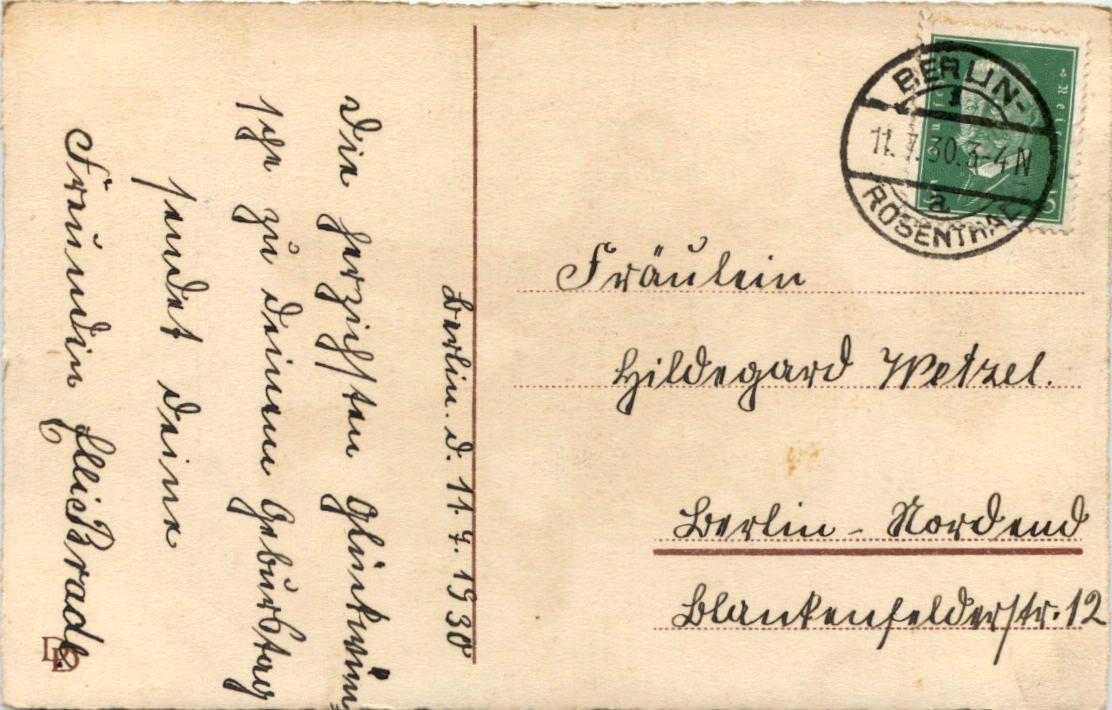 Berlin. d. 11.7.1930
Die herzichsten Glückwün-
sche zu deinem Geburtstag
sendet deine
Freundin Elli
Fräulein
Hildegard Wetzel.
Berlin-Nordend
Blankenfelderstr. 12
BERLIN-
1
11.7.30.3-4N
a
ROSENTHAL